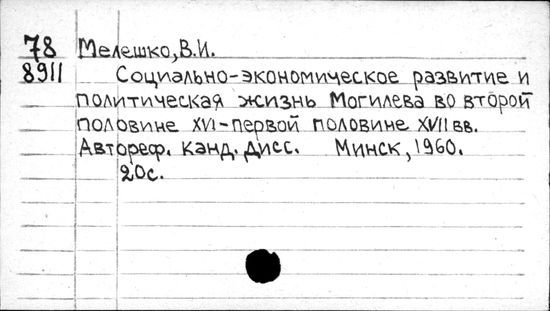 78 Мелешко, В.И.
8911 Социально-экономическое развитие и
политическая жизнь Могилева во второй
половине XVI-первой половине XVII вв.
Автореф. канд. дисс. Минск, 1960.
20с.